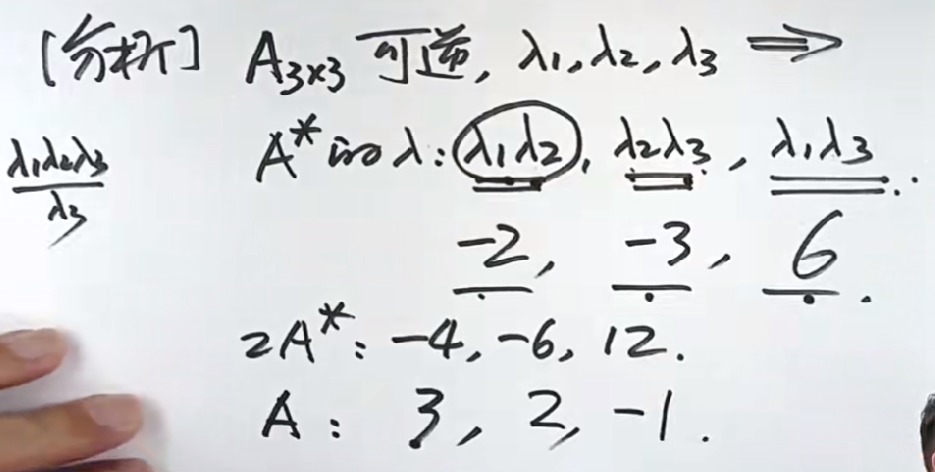 [分析] A₃ₓ₃ 可逆, λ₁, λ₂, λ₃ ⟹
λ₁λ₂λ₃/λ₃
A* 的 λ: λ₁λ₂, λ₂λ₃, λ₁λ₃.
-2, -3, 6.
2A*: -4, -6, 12.
A: 3, 2, -1.